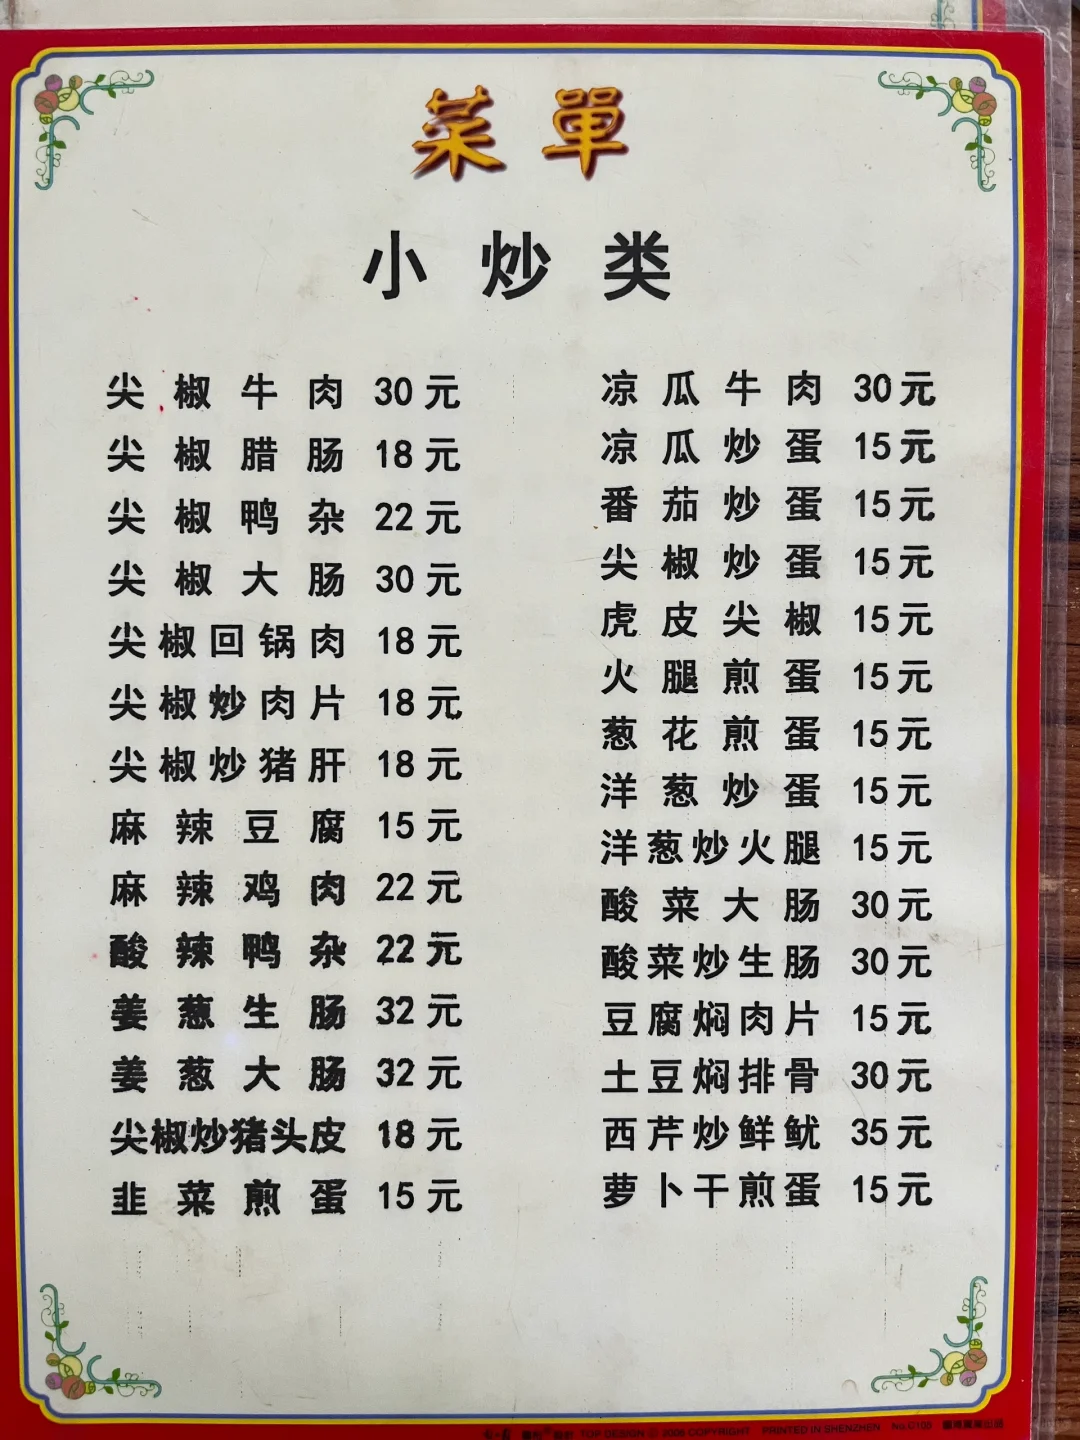 菜單
小炒类
尖椒牛肉 30元
尖椒腊肠 18元
尖椒鸭杂 22元
尖椒大肠 30元
尖椒回锅肉 18元
尖椒炒肉片 18元
尖椒炒猪肝 18元
麻辣豆腐 15元
麻辣鸡肉 22元
酸辣鸭杂 22元
姜葱生肠 32元
姜葱大肠 32元
尖椒炒猪头皮 18元
韭菜煎蛋 15元
凉瓜牛肉 30元
凉瓜炒蛋 15元
番茄炒蛋 15元
尖椒炒蛋 15元
虎皮尖椒 15元
火腿煎蛋 15元
葱花煎蛋 15元
洋葱炒蛋 15元
洋葱炒火腿 15元
酸菜大肠 30元
酸菜炒生肠 30元
豆腐焖肉片 15元
土豆焖排骨 30元
西芹炒鲜鱿 35元
萝卜干煎蛋 15元
TOP DESIGN © 2006 COPYRIGHT PRINTED IN SHENZHEN